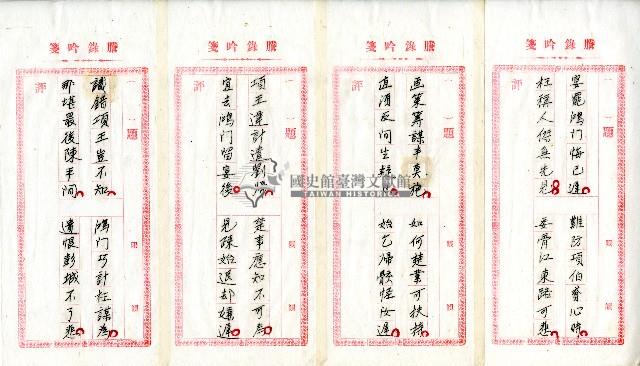 謄錄吟箋
題
評
宴罷鴻門悔已遲
難防項伯貳心時
枉稱人傑無先見
委骨江東歸可悲
謄錄吟箋
題
評
畫策籌謀
如何楚業可扶持
直須反間生疑
始乞歸骸怪汝遲
謄錄吟箋
題
評
項王違計遣劉
楚事應知不可為
宜去鴻門留宴後
見疎始退却嫌遲
謄錄吟箋
題
評
識錯項王豈不知
鴻門巧計枉謀為
那堪最後陳平間
遺恨彭城不了悲
國史館臺灣文獻館
TAIWAN HISTORICA